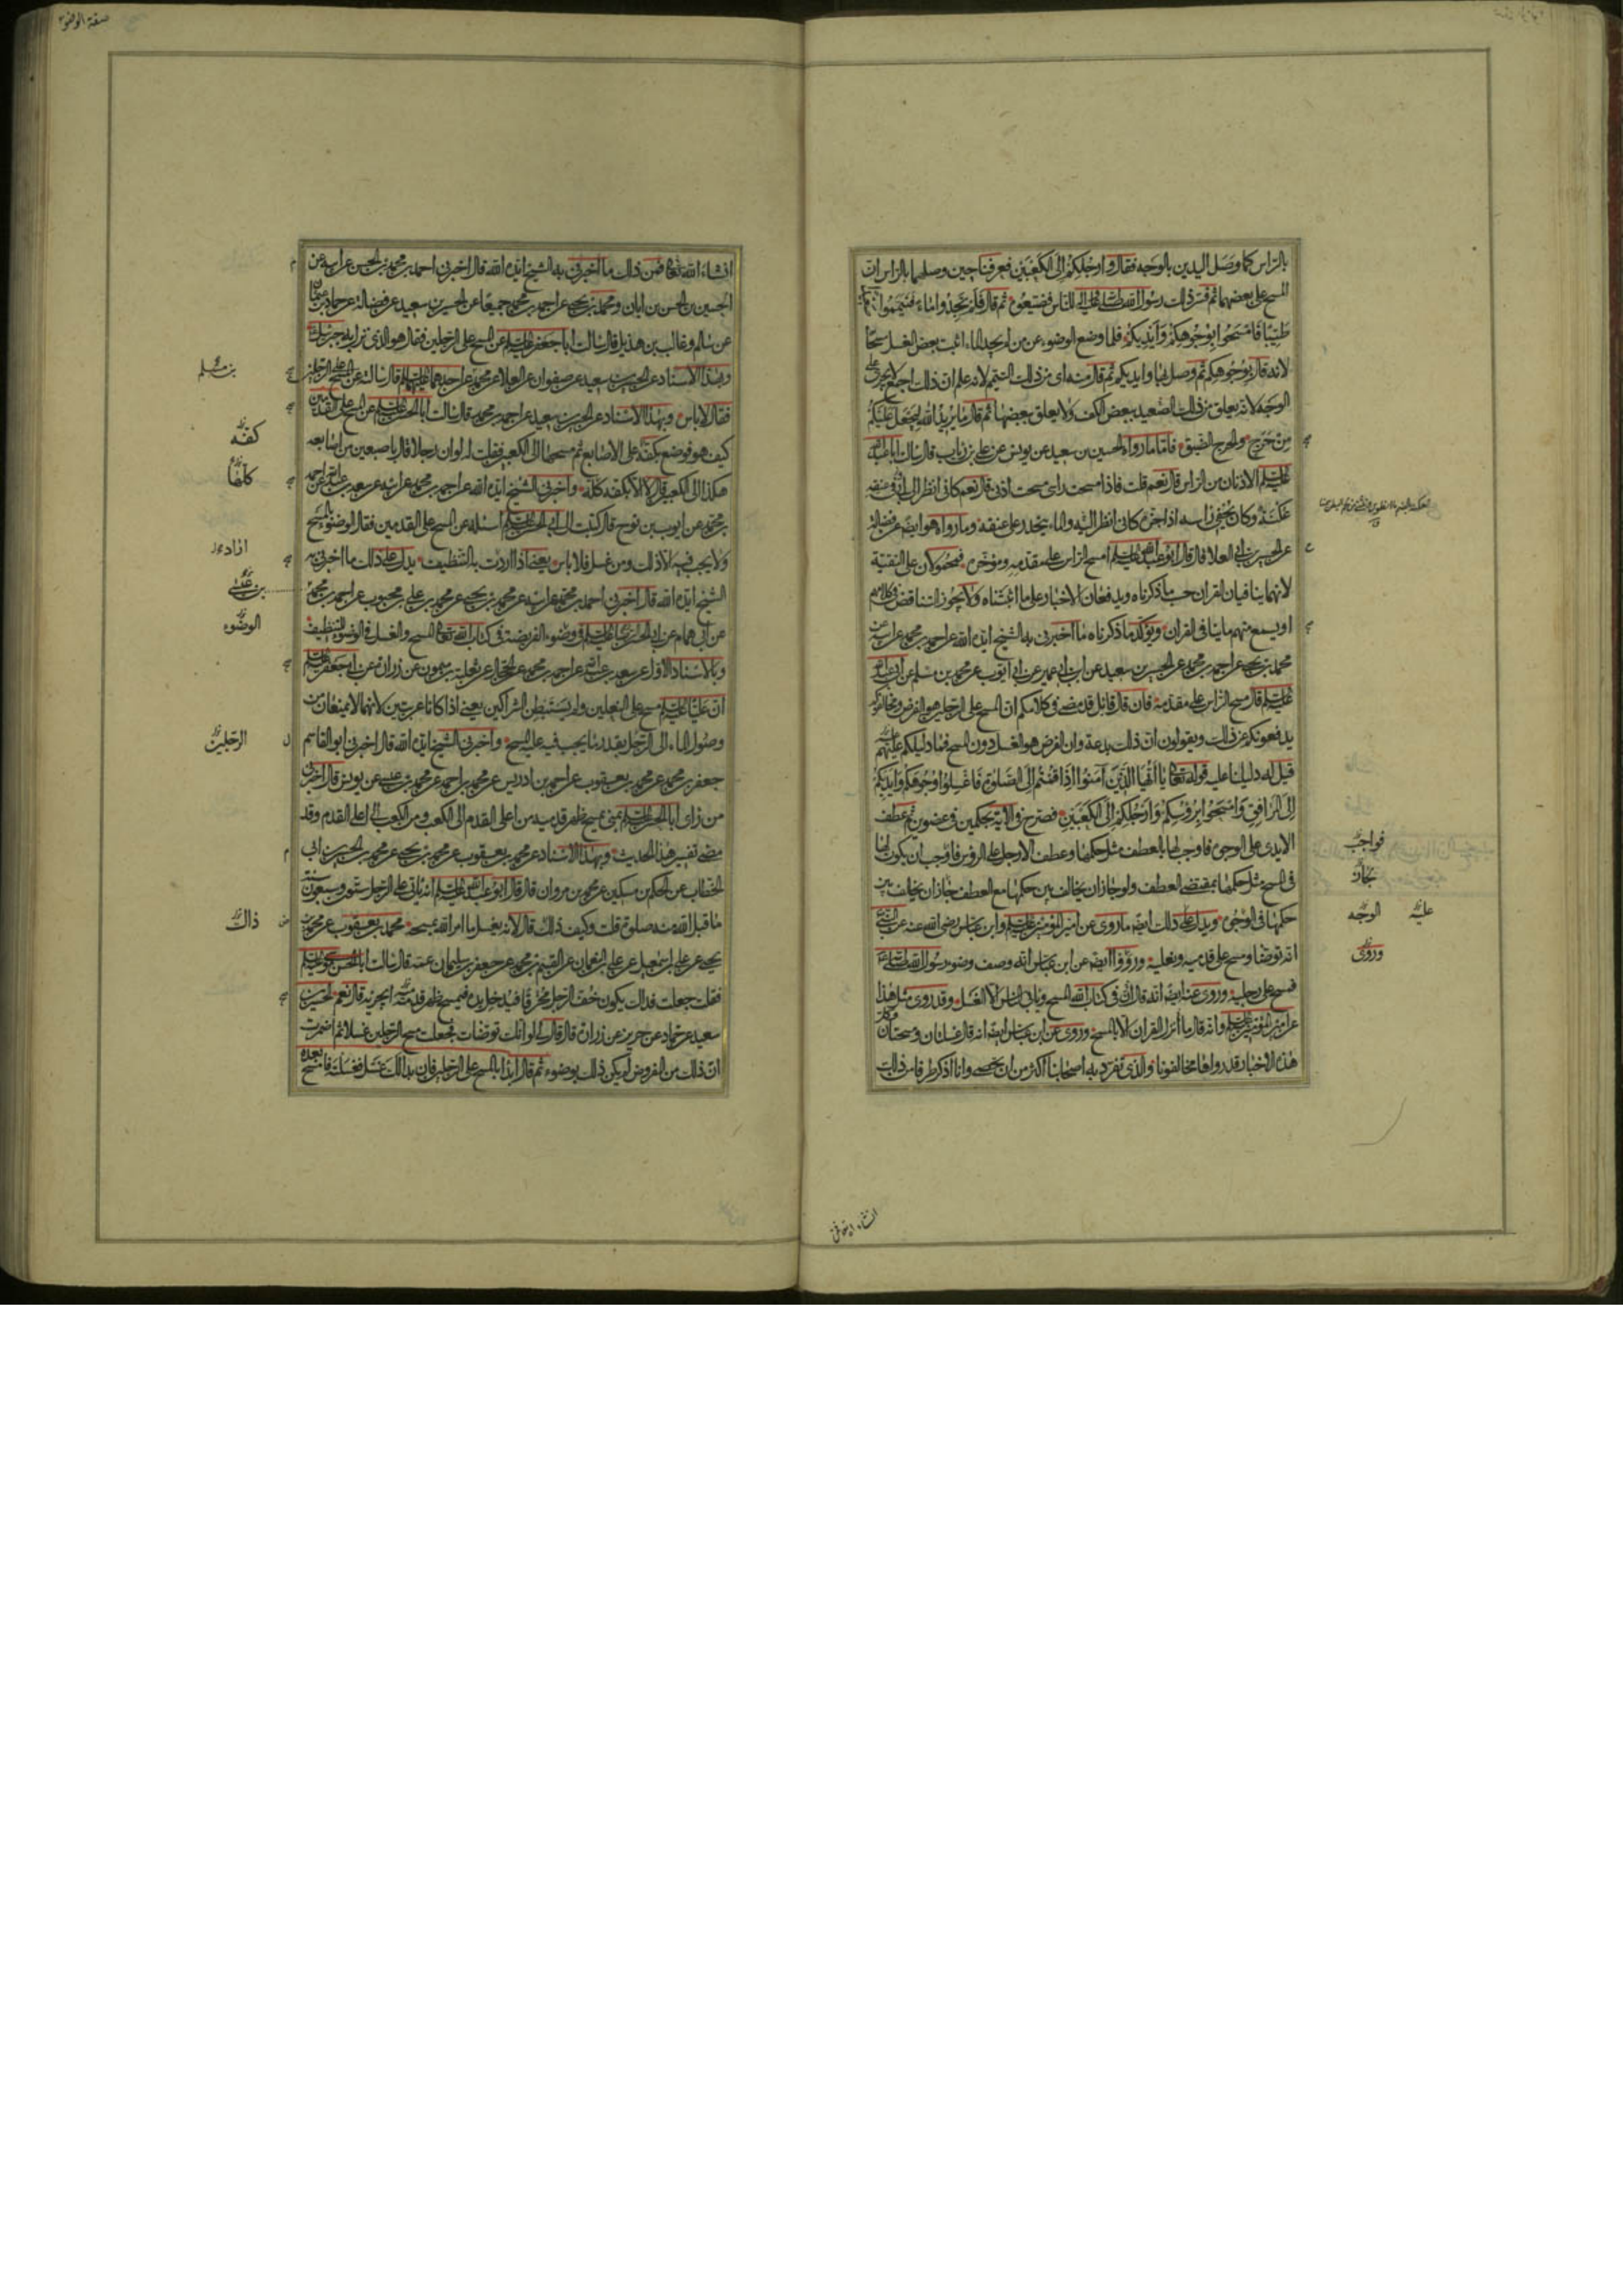 بالراس كما وصل اليدين بالوجه فقال وارجلكم الى الكعبين فعرفنا حين وصلهما بالراس ان
المسح على بعضهما ثم فسر ذلك رسول الله للناس فضيعوه ثم قال فلم تجدوا ماء فتيمموا
طيبا فامسحوا بوجوهكم وايديكم فلما وضع الوضوء عن من لم يجد الماء اثبت بعض الغسل مسحا
لانه قال بوجوهكم ثم وصل بها وايديكم ثم قال منه اى من ذلك التيمم لانه علم ان ذلك اجمع لا يجرى على
الوجه لانه يعلق من ذلك الصعيد ببعض الكف ولا يعلق ببعضها ثم قال ما يريد الله ليجعل عليكم
من حرج والحرج الضيق فاما ما رواه الحسين بن سعيد عن يونس عن على بن رئاب قال سالت ابا عبد الله
الاذنان من الراس قال نعم قلت فاذا مسحت راسى مسحت اذنى قال نعم كانى انظر الى ابى وفى عنقه
عكنة وكان يحفى راسه اذا جزه كانى انظر اليه والماء ينحدر على عنقه وما رواه هو ايضا عن فضالة
عن الحسين بن ابى العلا قال قال ابو عبد الله امسح الراس على مقدمه ومؤخره فمحمولان على التقية
لانهما ينافيان القران حسب ما ذكرناه ويدفعان الاخبار على ما اثبتناه ولا يجوز التناقض فى كلامهم
او يسمع منهم ما ينافى القران ويؤكد ما ذكرناه ما اخبرنى به الشيخ ايده الله عن احمد بن محمد عن ابيه عن
محمد بن يحيى عن احمد بن محمد عن الحسين بن سعيد عن ابن ابى عمير عن ابى ايوب عن محمد بن مسلم عن ابى عبد الله
قال مسح الراس على مقدمه فان قال قائل قد مضى فى كلامكم ان المسح على الرجلين هو الفرض ومخالفوكم
يدفعونكم عن ذلك ويقولون ان ذلك بدعة وان الفرض هو الغسل دون المسح فما دليلكم عليهم
قيل له دليلنا عليه قوله تعالى يا ايها الذين آمنوا اذا قمتم الى الصلوة فاغسلوا وجوهكم وايديكم
الى المرافق وامسحوا برؤسكم وارجلكم الى الكعبين فصرح فى الاية بحكمين فى عضوين ثم عطف
الايدى على الوجوه فاوجب لها بالعطف مثل حكمها وعطف الارجل على الرؤس فاوجب ان يكون لها
فى المسح مثل حكمها بمقتضى العطف ولو جاز ان يخالف بين حكمها مع العطف جاز ان يخالف بين
حكمها فى الوجوه ويدل على ذلك ايضا ما روى عن امير المؤمنين وابن عباس رضى الله عنه عن النبى
انه توضا ومسح على قدميه ونعليه ورووا ايضا عن ابن عباس انه وصف وضوء رسول الله
فمسح على رجليه وروى عنه ايضا انه قال ان فى كتاب الله المسح ويابى الناس الا الغسل وقد روى مثل هذا
عن امير المؤمنين وانه قال ما انزل القران الا بالمسح وروى عن ابن عباس ايضا انه قال غسلتان ومسحتان
هذه الاخبار قد رواها مخالفونا والذى تفرد به اصحابنا اكثر من ان يحصى وانا اذكر طرفا من ذلك
فواجب
جاز
الوجه
عليه
وروى
صفة الوضوء
انشاء الله تعالى فمن ذلك ما اخبرنى به الشيخ ايده الله قال اخبرنى احمد بن محمد بن الحسن عن ابيه عن
الحسين بن الحسن بن ابان ومحمد بن يحيى عن احمد بن محمد جميعا عن الحسين بن سعيد عن فضالة عن حماد بن عثمان
عن سالم وغالب بن هذيل قال سالت ابا جعفر عن المسح على الرجلين فقال هو الذى نزل به جبرئيل
وبهذا الاسناد عن الحسين بن سعيد عن صفوان عن العلا عن محمد عن احدهما قال سالته عن المسح على الرجلين
فقال لا باس وبهذا الاسناد عن الحسين بن سعيد عن احمد بن محمد قال سالت ابا الحسن عن المسح على القدمين
كيف هو فوضع بكفه على الاصابع ثم مسحها الى الكعبين فقلت له لو ان رجلا قال باصبعين من اصابعه
هكذا الى الكعبين قال لا الا بكفه كله واخبرنى الشيخ ايده الله عن احمد بن محمد عن ابيه عن سعد بن عبد الله عن احمد
بن محمد عن ايوب بن نوح قال كتبت الى ابى الحسن اساله عن المسح على القدمين فقال الوضوء بالمسح
ولا يجب فيه الا ذلك ومن غسل فلا باس يعنى اذا اردت به التنظيف يدل على ذلك ما اخبرنى به
الشيخ ايده الله قال اخبرنى احمد بن محمد عن ابيه عن محمد بن يحيى عن محمد بن على بن محبوب عن احمد بن محمد
عن ابى همام عن ابى الحسن فى وضوء الفريضة فى كتاب الله تعالى المسح والغسل فى الوضوء للتنظيف
وبالاسناد الاول عن سعد بن عبد الله عن احمد بن محمد عن الحجال عن ثعلبة بن ميمون عن زرارة عن ابى جعفر
ان عليا مسح على النعلين ولم يستبطن الشراكين يعنى اذا كانا عربيين لانهما لا يمنعان من
وصول الماء الى الرجل بقدر ما يجب فيه عليه المسح واخبرنى الشيخ ايده الله قال اخبرنى ابو القاسم
جعفر بن محمد عن محمد بن يعقوب عن احمد بن ادريس عن محمد بن احمد عن محمد بن عيسى عن يونس قال اخبرنى
من راى ابا الحسن بمنى يمسح ظهر قدميه من اعلى القدم الى الكعب ومن الكعب الى اعلى القدم وقد
مضى تفسير هذا الحديث وبهذا الاسناد عن محمد بن يعقوب عن محمد بن يحيى عن محمد بن الحسين بن ابى
الخطاب عن الحكم بن مسكين عن محمد بن مروان قال قال ابو عبد الله انه ياتى على الرجل ستون وسبعون سنة
ما قبل الله منه صلوة قلت وكيف ذلك قال لانه يغسل ما امر الله بمسحه محمد بن يعقوب عن محمد بن
يحيى عن على بن اسمعيل عن على بن النعمان عن القسم بن محمد عن جعفر بن سليمان عمه قال سالت ابا الحسن موسى
فقلت جعلت فداك يكون خف الرجل مخرقا فيدخل يده فيمسح ظهر قدمه ايجزيه قال نعم الحسين بن
سعيد عن حماد عن حريز عن زرارة قال قال لى لو انك توضات فجعلت مسح الرجلين غسلا ثم اضمرت
ان ذلك من المفروض لم يكن ذلك بوضوء ثم قال ابدا بالمسح على الرجلين فان بدا لك غسل فغسلته فامسح بعده
بن مسلم
كفه
كلها
اراد
بن عيسى
الوضوء
الرجلين
ذاك